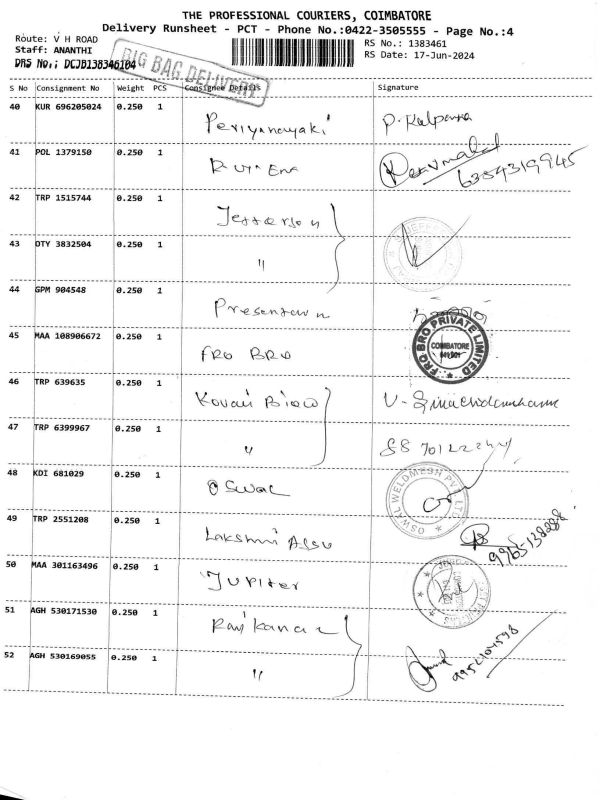 THE PROFESSIONAL COURIERS, COIMBATORE
Delivery Runsheet - PCT - Phone No.:0422-3505555 - Page No.:4
Route: V H ROAD
RS No.: 1383461
Staff: ANANTHI
RS Date: 17-Jun-2024
DRS No.: DCJB138346104
BIG BAG DELIVERY
S No Consignment No Weight PCS Consignee Details Signature
40 KUR 696205024 0.250 1
Periyanayaki P. Kalpana
41 POL 1379150 0.250 1
6354319945
42 TRP 1515744 0.250 1
Jefferson
43 OTY 3832504 0.250 1
"
44 GPM 904548 0.250 1
45 MAA 108906672 0.250 1
FRO BRO
FRO BRO PRIVATE LIMITED
COIMBATORE
641 001
46 TRP 639635 0.250 1
Kovai
47 TRP 6399967 0.250 1
"
48 KDI 681029 0.250 1
OSWAL
OSWAL WELDMESH PVT LTD
49 TRP 2551208 0.250 1
Lakshmi
9965-138288
50 MAA 301163496 0.250 1
Jupiter
51 AGH 530171530 0.250 1
52 AGH 530169055 0.250 1
"
9952104598